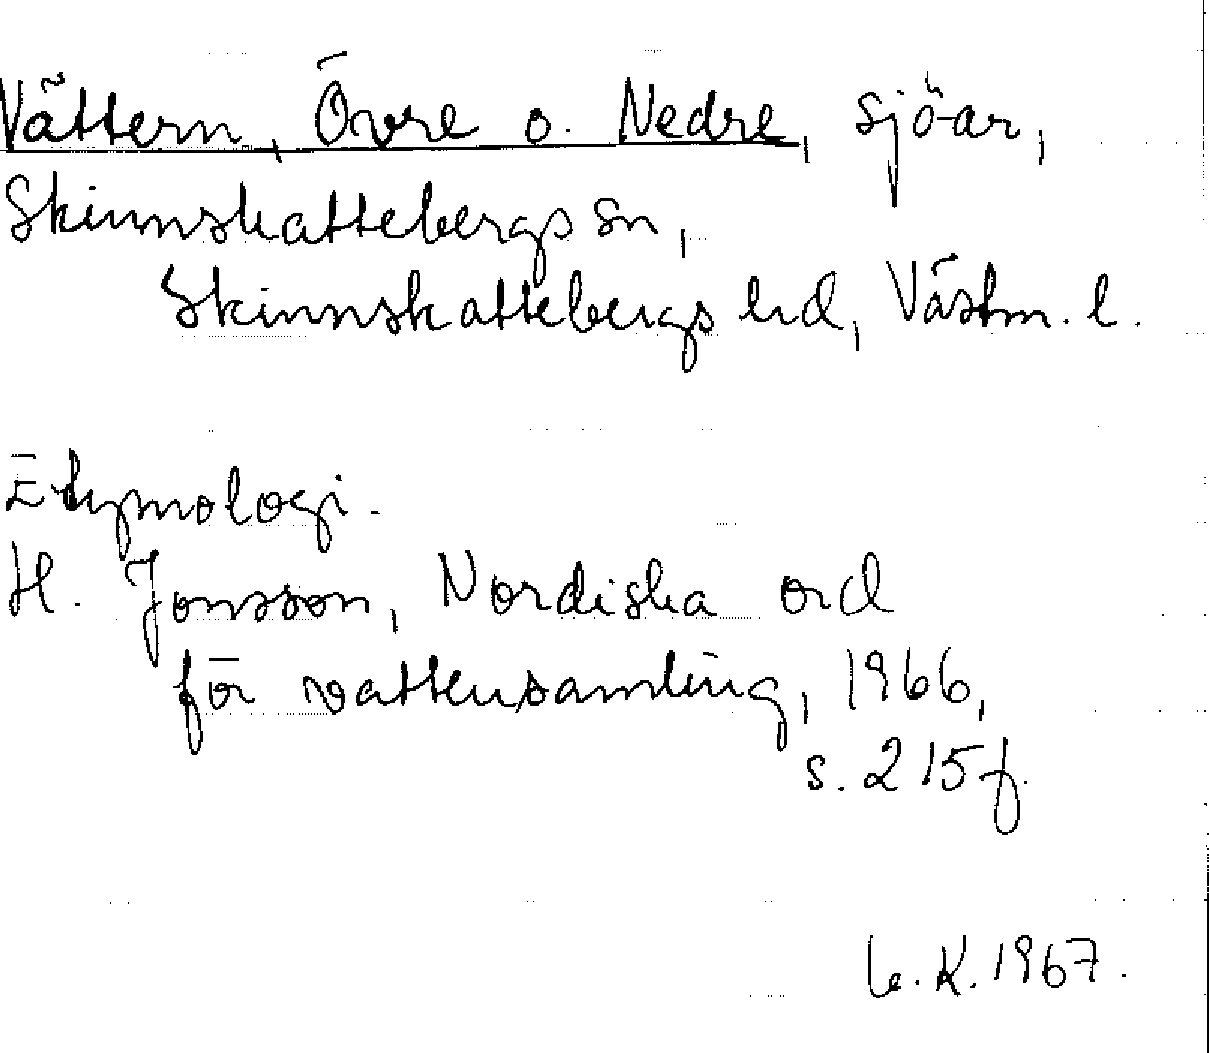 Vättern, Övre o. Nedre, sjöar,
Skinnskattebergs sn,
Skinnskattebergs hd, Västm. l.
Etymologi.
H. Jonsson, Nordiska ord
för vattensamling, 1966,
s. 215 f.
K. 1967.